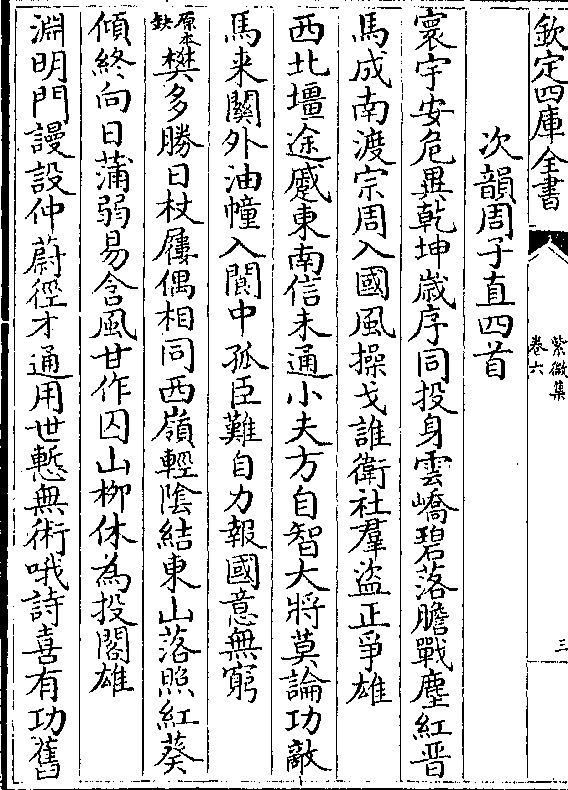 欽定四庫全書
紫微集
卷六
三
次韻周子直四首
寰宇安危異乾坤歲序同投身雲嶠碧落膽戰塵紅晋
馬成南渡宗周入國風操戈誰衛社羣盜正爭雄
西北壃途蹙東南信未通小夫方自智大將莫論功敵
馬來關外油幢入閬中孤臣難自力報國意無窮
原本缺樊多勝日杖屨偶相同西嶺輕陰結東山落照紅葵
傾終向日蒲弱易含風甘作囚山柳休為投閣雄
淵明門謾設仲蔚徑才通用世慙無術哦詩喜有功舊